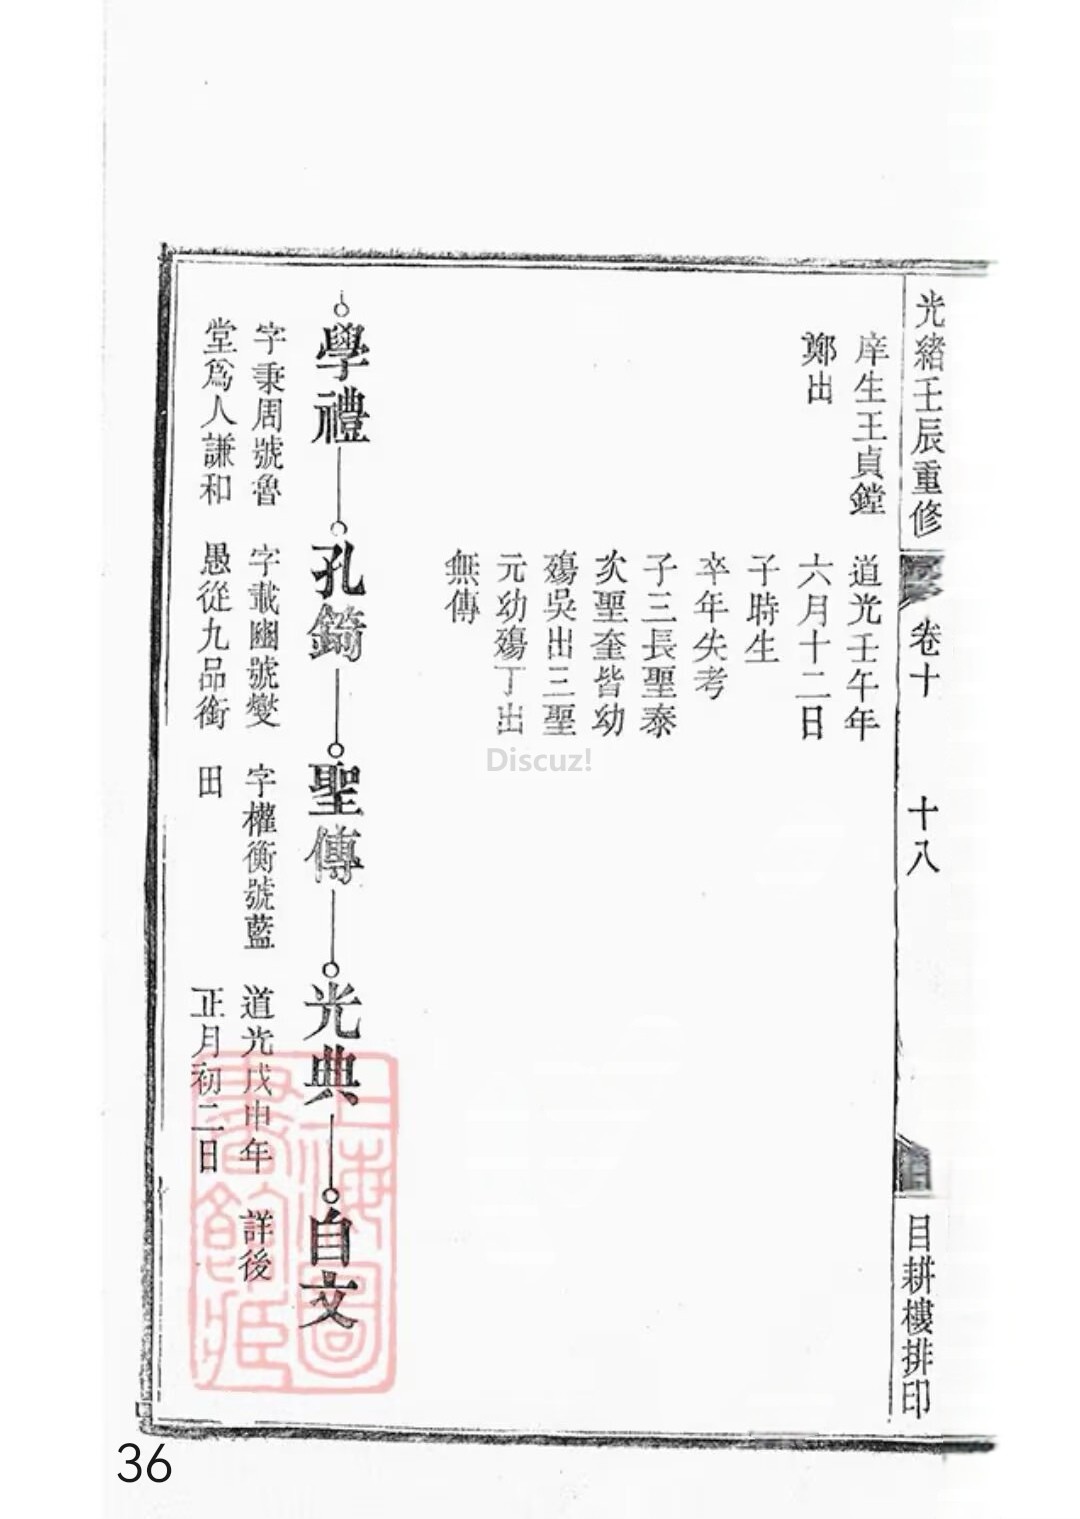 光緒壬辰重修
卷十
十八
目耕樓排印
庠生王貞鏜
鄭出
道光壬午年
六月十二日
子時生
卒年失考
子三長聖泰
次聖奎皆幼
殤吳出三聖
元幼殤丁出
無傳
學禮
孔錡
聖傳
光典
自文
字秉周號魯
堂為人謙和
字載豳號燮
愚從九品銜
字權衡號藍
田
道光戊申年
正月初二日
詳後
上海圖
書館藏
Discuz!
36